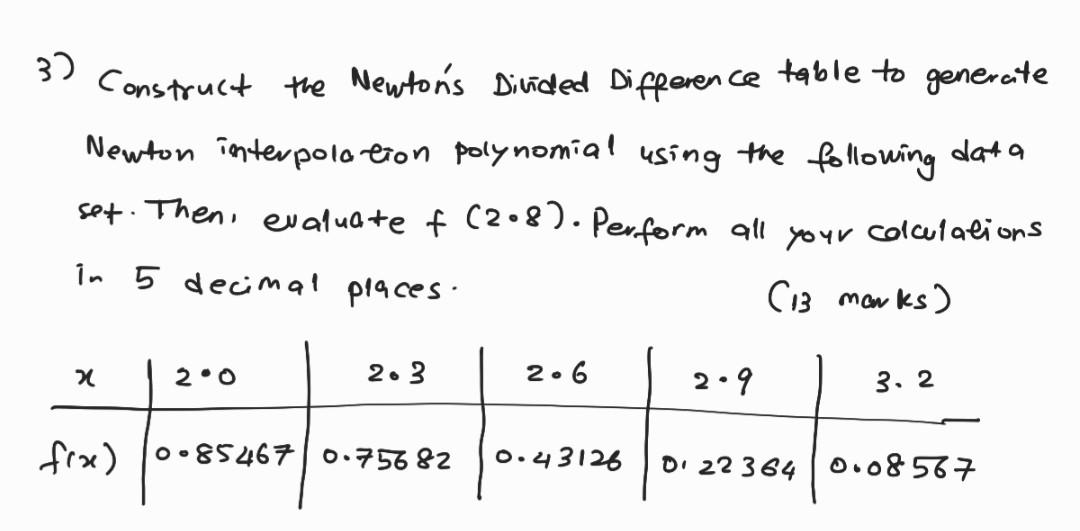 3) Construct the Newton's Divided Difference table to generate
Newton interpolation polynomial using the following data
set. Then, evaluate f (2.8). Perform all your calculations
in 5 decimal places.
(13 marks)
x 2.0 2.3 2.6 2.9 3.2
f(x) 0.85467 0.75682 0.43126 0.22364 0.08567